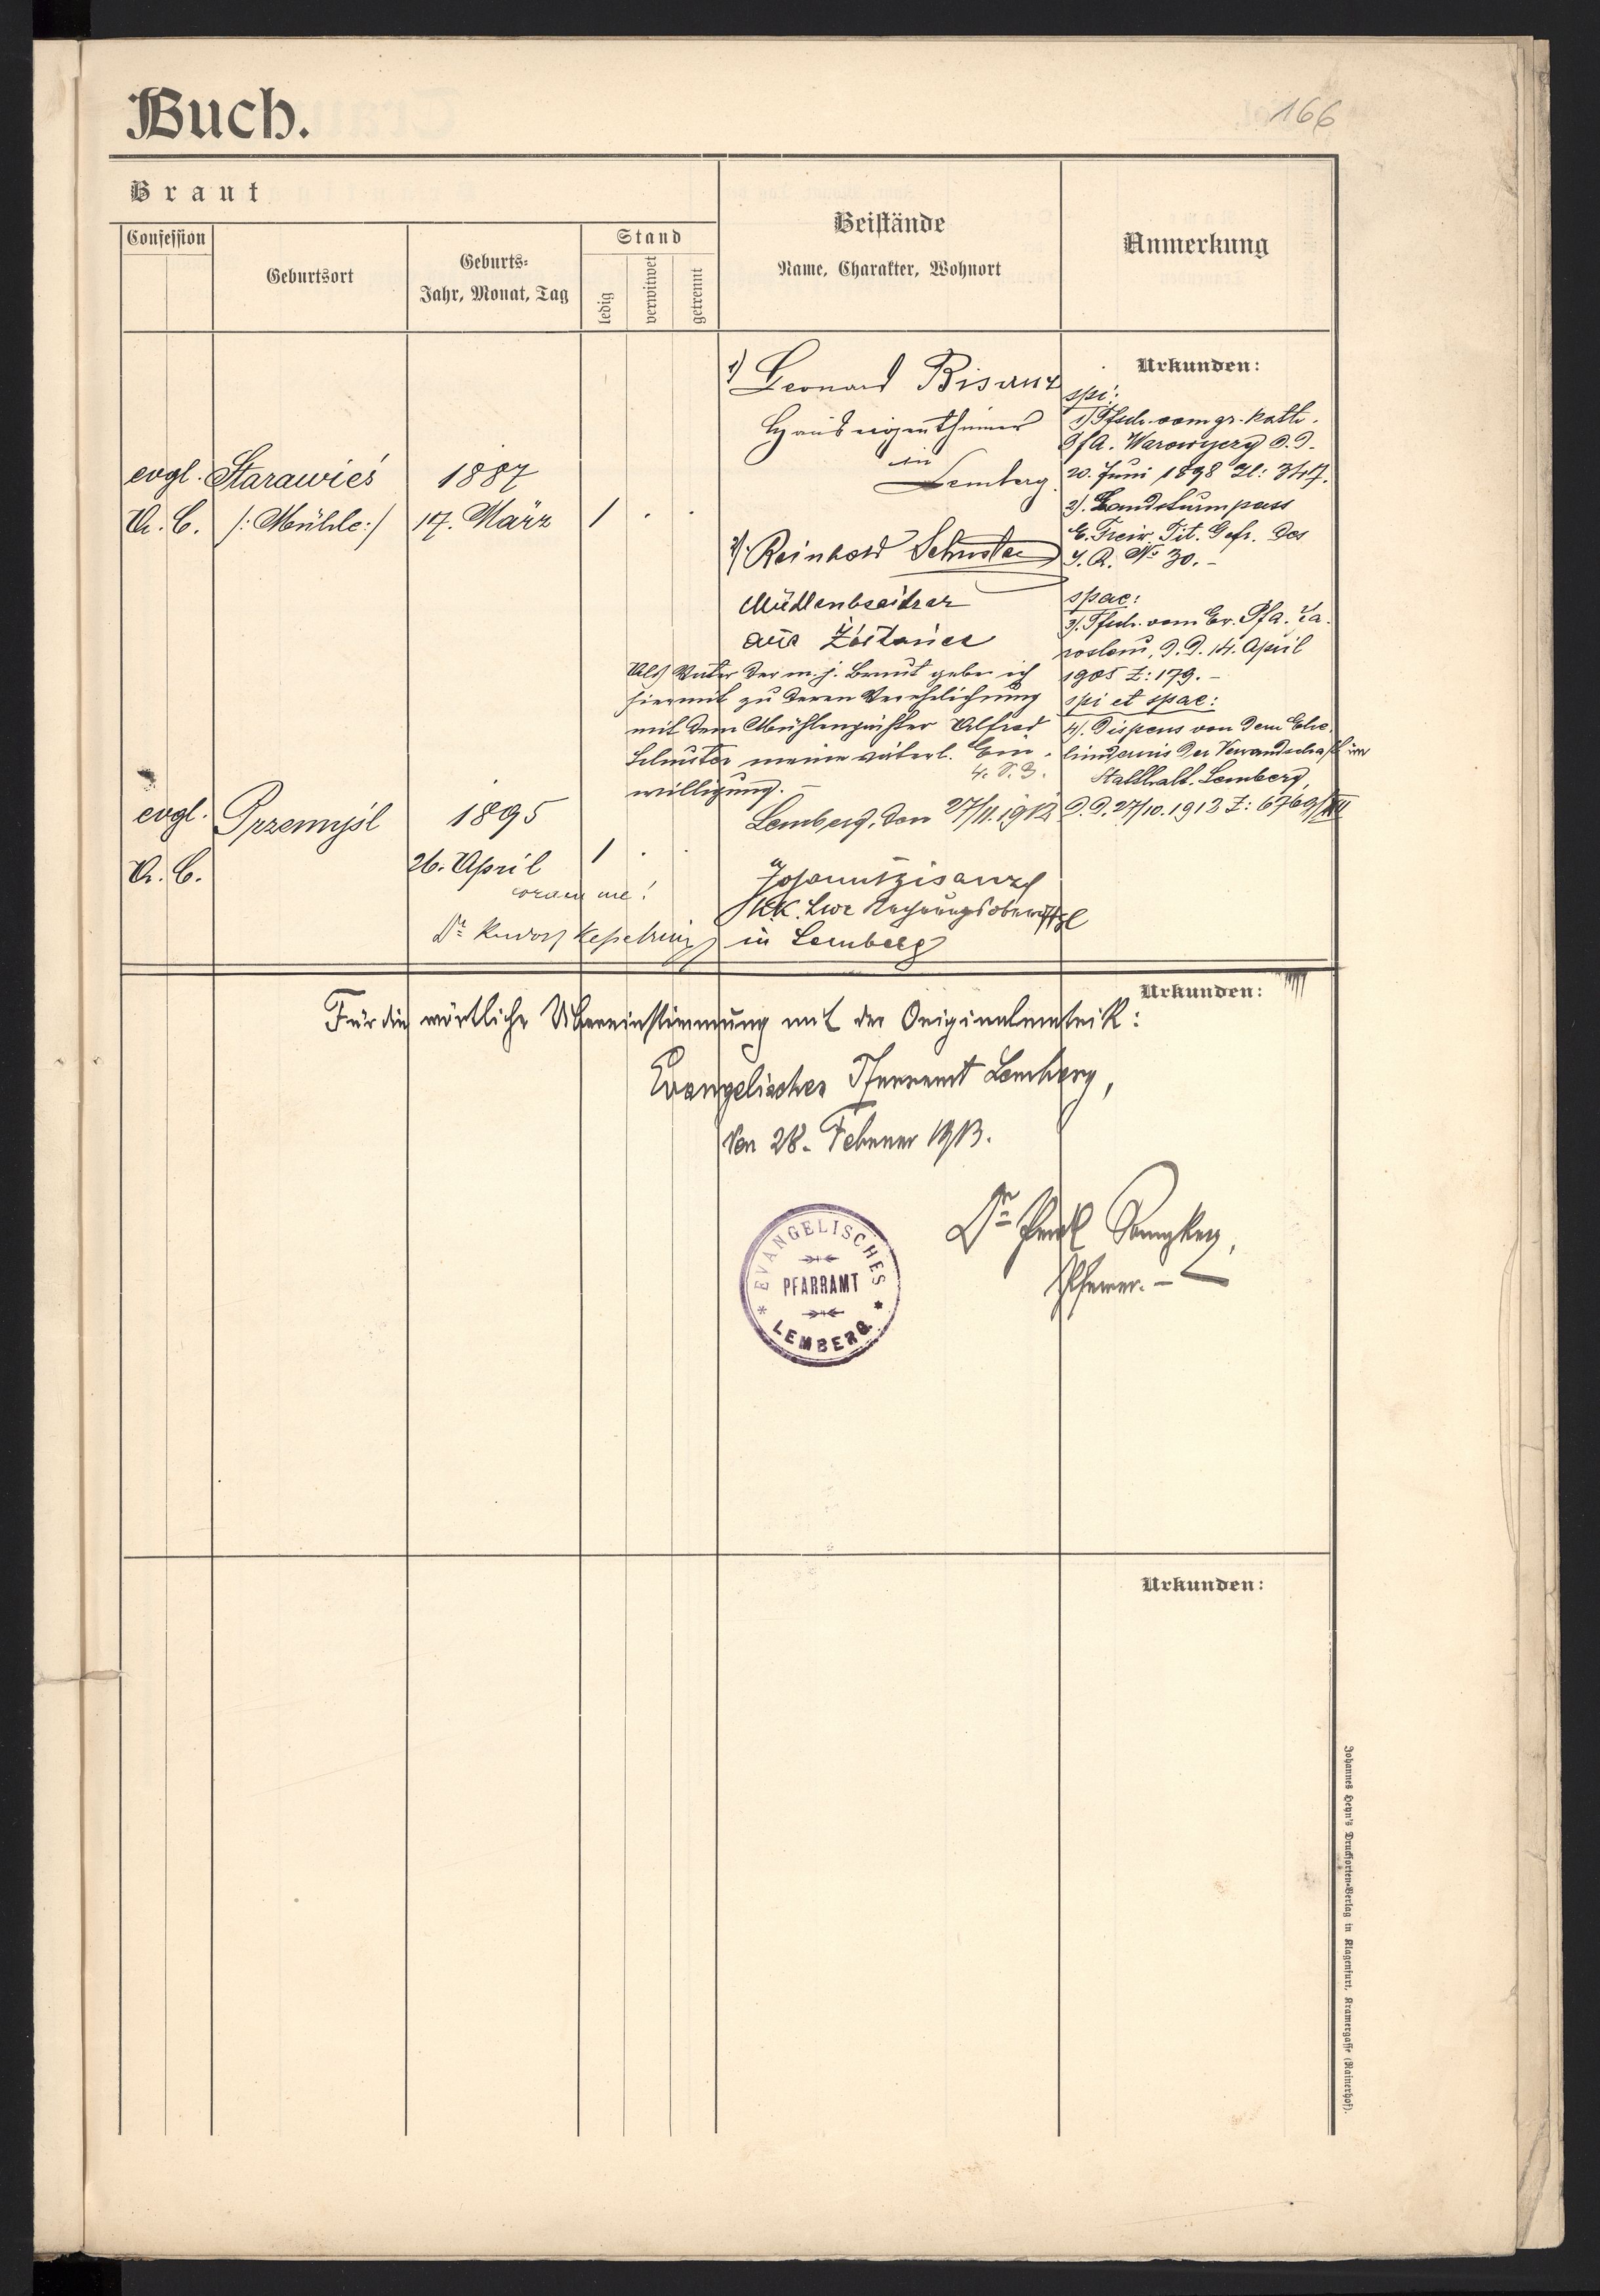 Buch.
166
Braut
Confession
Geburtsort
Geburts-
Jahr, Monat, Tag
Stand
ledig
verwitwet
getrennt
Beistände
Name, Charakter, Wohnort
Anmerkung
evgl.
A. C.
Starawieś
/: Mühle :/
1887
17. März
1 . .
1) Leonard Bisanz
Hauseigenthümer
in
Lemberg.
2) Reinhold Schuster
Mühlenbesitzer
aus
Als Vater der m. j. Braut gebe ich
hiermit zu deren Verehelichung
mit dem Mühlenpächter Alfred
Schuster meine väterl. Ein-
willigung. –
Lemberg, den 27/11. 1912
Johann Bisanz
K.K.
in Lemberg
Urkunden:
spi:
1) Tfsch. vom gr. kath.
PfA. d. d.
20. Juni 1898 Zl: 347.
2). Landsturmpass
E. Freiw. Tit. Gefr. des
I. R. No 30. –
spae:
3). Tfsch. vom Ev. PfA. Ja-
roslau, d. d. 14. April
1905 Z: 179. –
spi et spae:
4). Dispens von dem Ehe-
hindernis der Verwandschaft im
4. Statthalt. Lemberg,
d. d. 27/10. 1912 Z: 6769/XII
evgl.
A. C.
Przemyśl
1895
26. April
1 . .
coram me!
Dr Rudolf Kesselring
Urkunden:
Für die wörtliche Übereinstimmung mit der Originalmatrik:
Evangelisches Pfarramt Lemberg,
den 28. Februar 1913.
Dr
Pfarrer. –
EVANGELISCHES
PFARRAMT
* LEMBERG *
Urkunden:
Johannes Heyn's Drucksorten-Verlag in Klagenfurt, Kramergasse (Rainerhof).